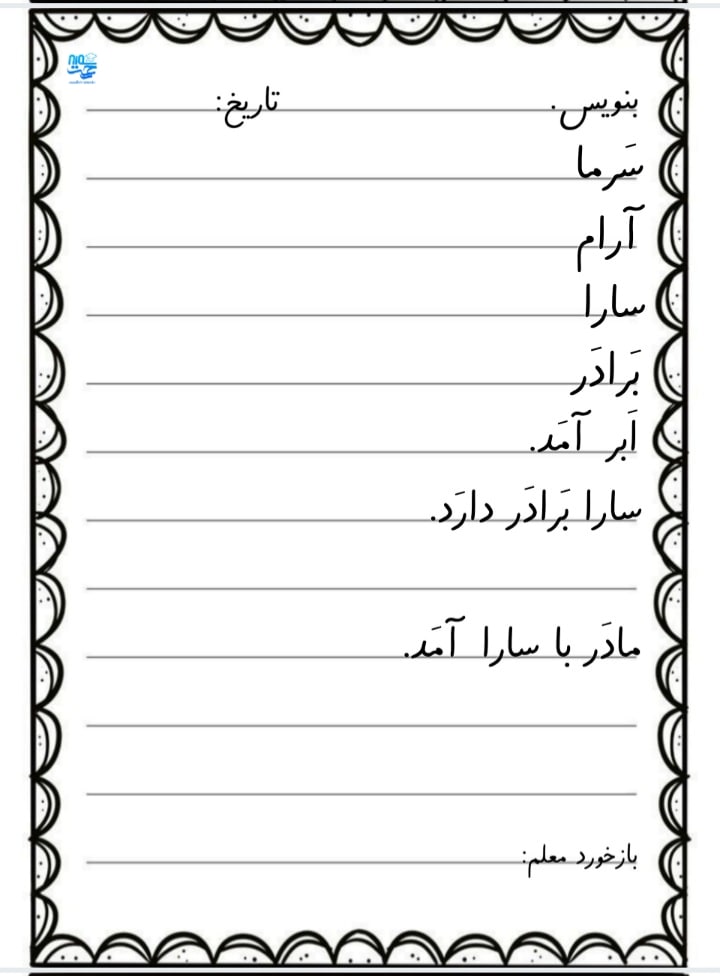 بنویس. تاریخ:
سَرما
آرام
سارا
بَرادَر
اَبر آمَد.
سارا بَرادَر دارَد.
مادَر با سارا آمَد.
بازخورد معلم: